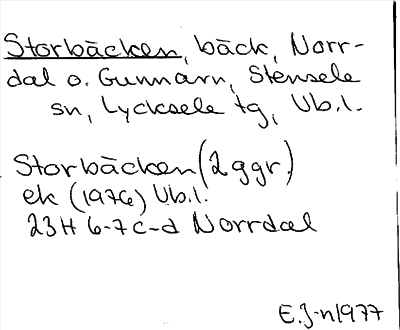 Storbäcken, bäck, Norr-
dal o. Gunnarn, Stensele
sn, Lycksele tg, Vb.l.
Storbäcken (2 ggr.)
ek (1976) Vb.l.
23H 6-7 c-d Norrdal
E.J-n 1977